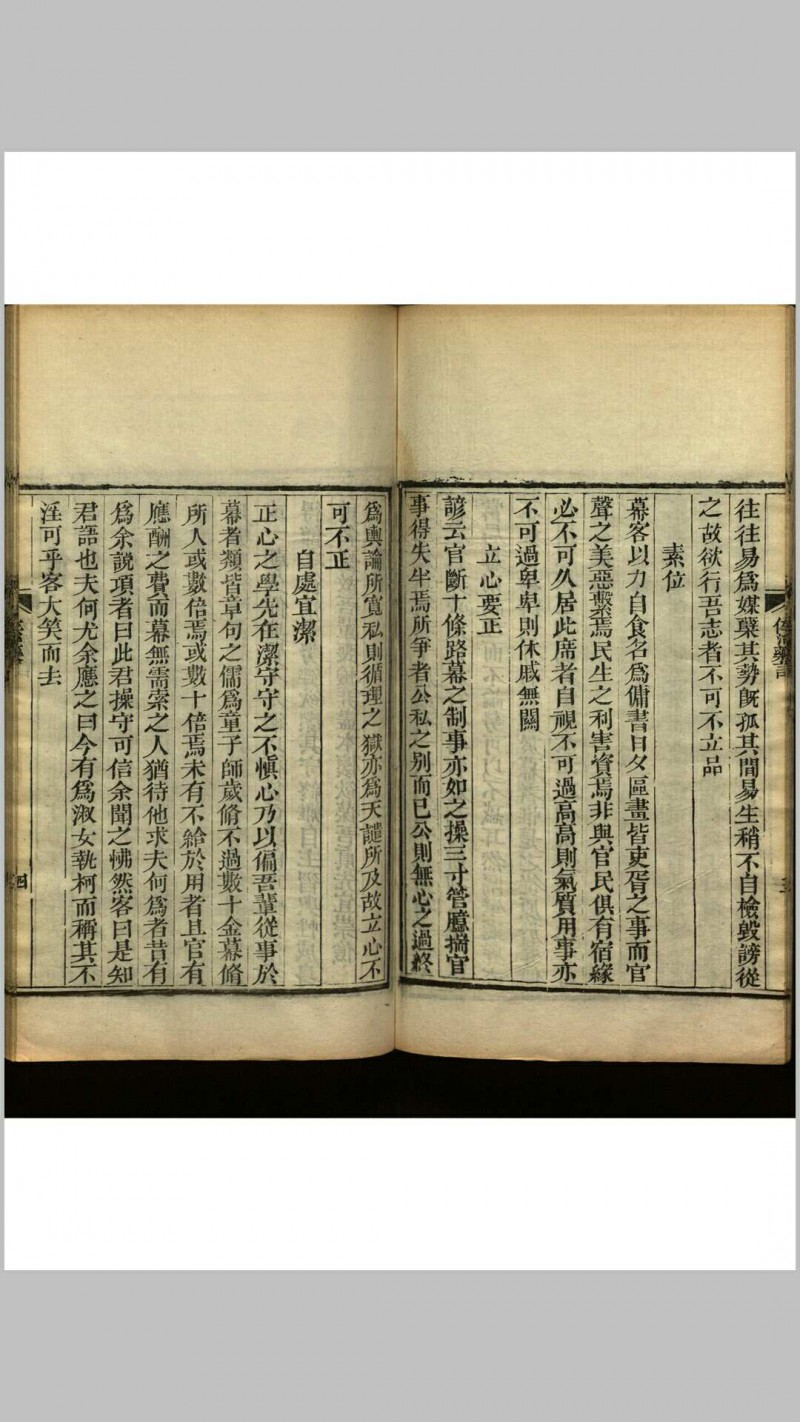 往往易爲媒櫱其勢旣孤其閒易生稍不自檢毀謗從
之故欲行吾志者不可不立品
素位
幕客以力自食名爲傭書日夕區畫皆吏胥之事而官
聲之美惡繫焉民生之利害資焉非與官民俱有宿緣
必不可久居此席者自視不可過高高則氣質用事亦
不可過卑卑則休戚無關
立心要正
諺云官斷十條路幕之制事亦如之操三寸管臆揣官
事得失半焉所爭者公私之別而已公則無心之過終
爲輿論所寬私則循理之獄亦爲天譴所及故立心不
可不正
自處宜潔
正心之學先在潔守守之不愼心乃以偏吾輩從事於
幕者類皆章句之儒爲童子師歲脩不過數十金幕脩
所人或數倍焉或數十倍焉未有不給於用者且官有
應酬之費而幕無需索之人猶待他求夫何爲者昔有
爲余說項者曰此君操守可信余聞之怫然客曰是知
君語也夫何尤余應之曰今有爲淑女執柯而稱其不
淫可乎客大笑而去
四